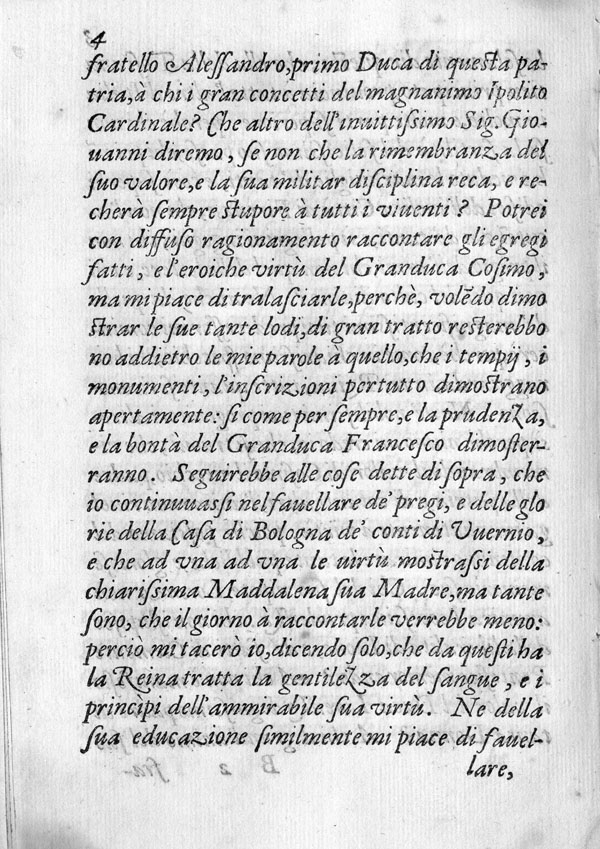 4
fratello Alessandro, primo Ducà di questa pá-
tria, à chi i gran concetti del magnanimo Ipolito
Cardinale? Che altro dell'inuittissimo Sig. Gio-
uanni diremo, se non che la rimembranza del
suo valore, e la sua militar disciplina reca, e re-
cherà sempre stupore à tutti i viuenti? Potrei
con diffuso ragionamento raccontare gli egregi
fatti, e l'eroiche virtù del Granduca Cosimo,
ma mi piace di tralasciarle, perchè, volẽdo dimo
strar le sue tante lodi, di gran tratto resterebbo
no addietro le mie parole à quello, che i tempij, i
monumenti, l'inscrizioni pertutto dimostrano
apertamente: si come per sempre, e la prudenza,
e la bontà del Granduca Francesco dimoster-
ranno. Seguirebbe alle cose dette di sopra, che
io continuuassi nel fauellare de' pregi, e delle glo
rie della Casa di Bologna de' conti di Vuernio,
e che ad vna ad vna le uirtù mostrassi della
chiarissima Maddalena sua Madre, ma tante
sono, che il giorno à raccontarle verrebbe meno:
perciò mi tacerò io, dicendo solo, che da questi ha
la Reina tratta la gentilezza del sangue, e i
principi dell'ammirabile sua virtù. Ne della
sua educazione similmente mi piace di fauel-
lare,